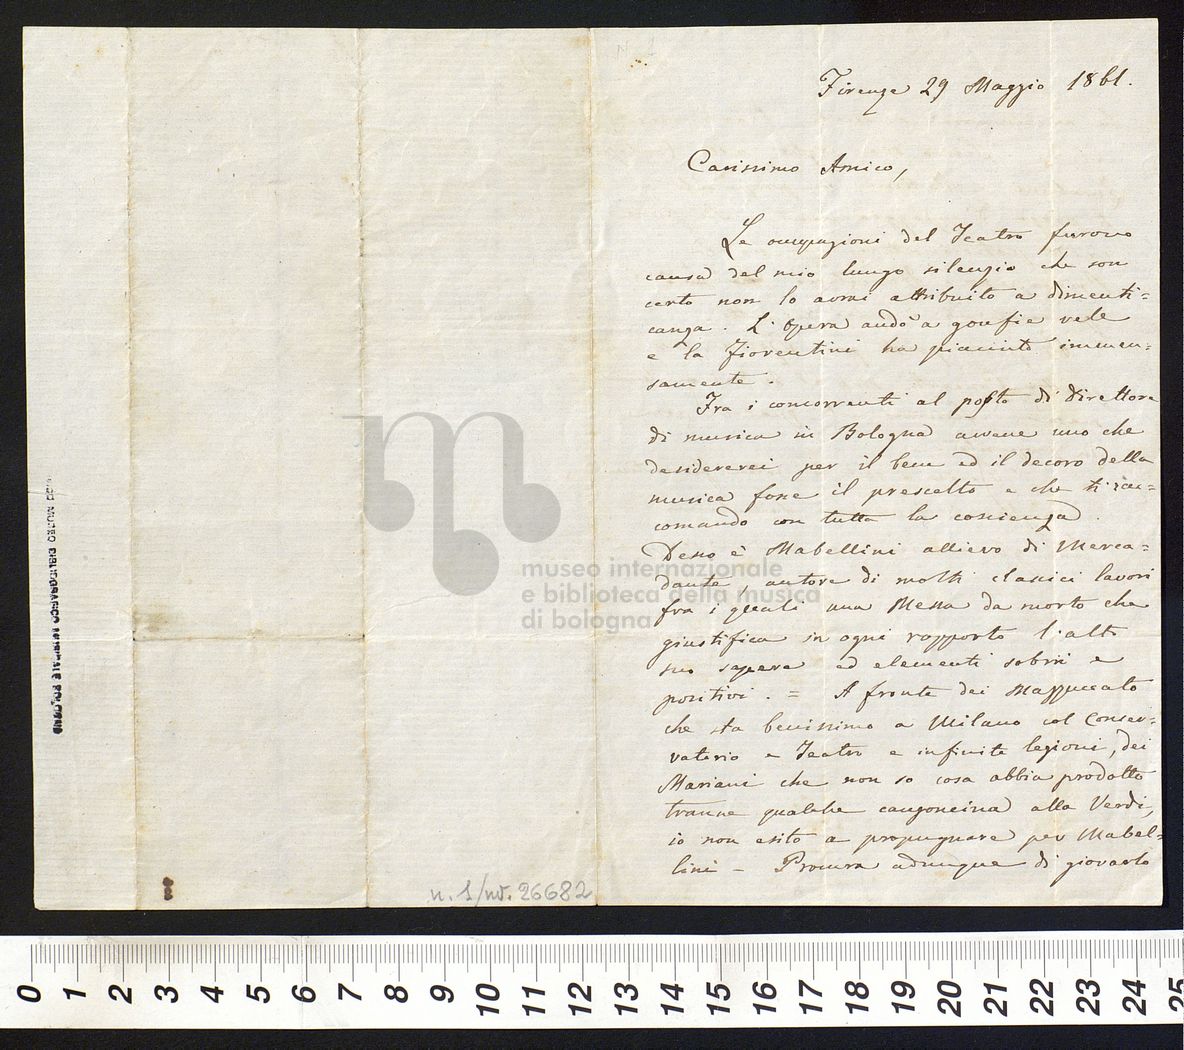 Firenze 29 Maggio 1861.
Carissimo Amico,
Le occupazioni del Teatro furono
causa del mio lungo silenzio che son
certo non lo avrai attribuito a dimenti=
canza. L'Opera andò a gonfie vele
e la Fiorentini ha piaciuto immen=
samente.
Fra i concorrenti al posto di Direttore
di musica in Bologna avvene uno che
desidererei per il bene ed il decoro della
musica fosse il prescelto e che ti rac=
comando con tutta la coscienza.
Desso è Mabellini allievo di Merca=
dante autore di molti classici lavori
fra i quali una Messa da morto che
giustifica in ogni rapporto l'alto
suo sapere ed elementi sobrii e
positivi. = A fronte dei Mazzucato
che sta benissimo a Milano col Conser=
vatorio e Teatro e infinite lezioni, dei
Mariani che non so cosa abbia prodotto
tranne qualche canzoncina alla Verdi,
io non esito a propugnare per Mabel=
lini – Procura adunque di giovarlo
n. 1/nv. 26682
museo internazionale
e biblioteca della musica
di bologna
0 1 2 3 4 5 6 7 8 9 10 11 12 13 14 15 16 17 18 19 20 21 22 23 24 25